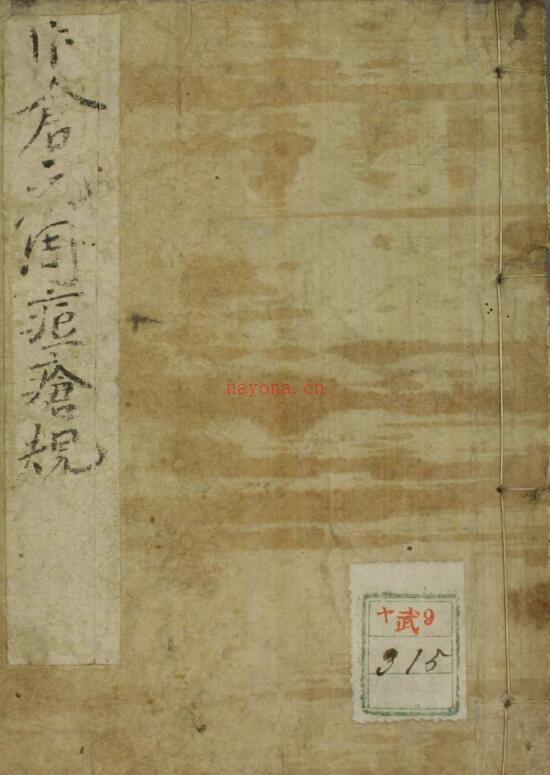 片倉元周痘瘡規
nayona.cn
十武9
315